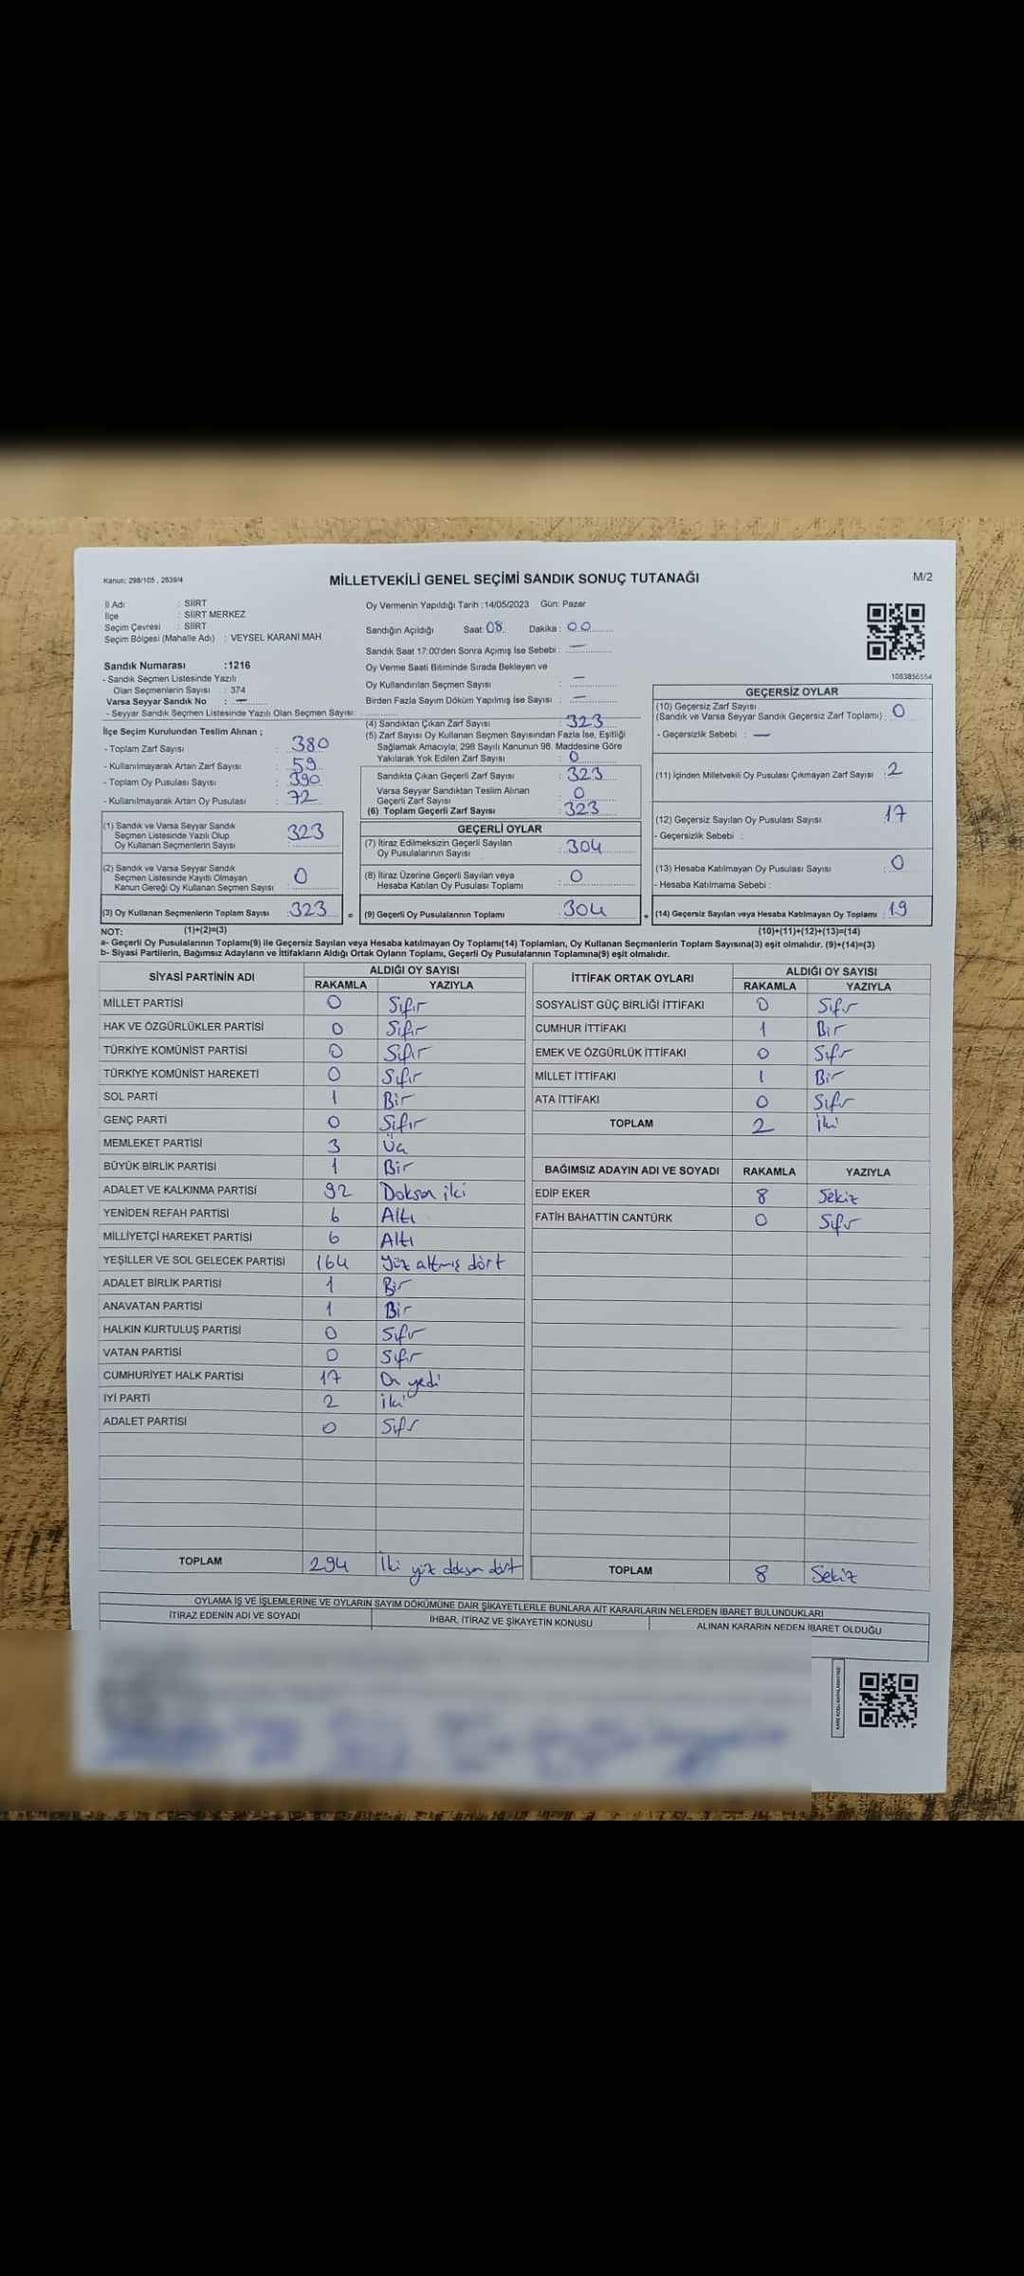 Kanun: 298/105 , 2839/4
MİLLETVEKİLİ GENEL SEÇİMİ SANDIK SONUÇ TUTANAĞI
M/2
İl Adı : SİİRT
İlçe : SİİRT MERKEZ
Seçim Çevresi : SİİRT
Seçim Bölgesi (Mahalle Adı) : VEYSEL KARANİ MAH.
Oy Vermenin Yapıldığı Tarih :14/05/2023 Gün: Pazar
Sandığın Açıldığı Saat: 08 Dakika : 00
Sandık Saat 17:00'den Sonra Açımış İse Sebebi : —
Oy Verme Saati Bitiminde Sırada Bekleyen ve
Oy Kullandırılan Seçmen Sayısı : —
Birden Fazla Sayım Döküm Yapılmış İse Sayısı : —
1083856554
Sandık Numarası :1216
- Sandık Seçmen Listesinde Yazılı
Olan Seçmenlerin Sayısı : 374
Varsa Seyyar Sandık No : —
- Seyyar Sandık Seçmen Listesinde Yazılı Olan Seçmen Sayısı:
İlçe Seçim Kurulundan Teslim Alınan ;
- Toplam Zarf Sayısı : 380
- Kullanılmayarak Artan Zarf Sayısı : 59
- Toplam Oy Pusulası Sayısı : 390
- Kullanılmayarak Artan Oy Pusulası : 72
(1) Sandık ve Varsa Seyyar Sandık
Seçmen Listesinde Yazılı Olup
Oy Kullanan Seçmenlerin Sayısı : 323
(2) Sandık ve Varsa Seyyar Sandık
Seçmen Listesinde Kayıtlı Olmayan
Kanun Gereği Oy Kullanan Seçmen Sayısı : 0
(3) Oy Kullanan Seçmenlerin Toplam Sayısı : 323 =
(4) Sandıktan Çıkan Zarf Sayısı : 323
(5) Zarf Sayısı Oy Kullanan Seçmen Sayısından Fazla İse, Eşitliği
Sağlamak Amacıyla; 298 Sayılı Kanunun 98. Maddesine Göre
Yakılarak Yok Edilen Zarf Sayısı : 0
Sandıkta Çıkan Geçerli Zarf Sayısı : 323
Varsa Seyyar Sandıktan Teslim Alınan
Geçerli Zarf Sayısı : 0
(6) Toplam Geçerli Zarf Sayısı : 323
GEÇERLİ OYLAR
(7) İtiraz Edilmeksizin Geçerli Sayılan
Oy Pusulalarının Sayısı : 304
(8) İtiraz Üzerine Geçerli Sayılan veya
Hesaba Katılan Oy Pusulası Toplamı : 0
(9) Geçerli Oy Pusulalarının Toplamı : 304 +
GEÇERSİZ OYLAR
(10) Geçersiz Zarf Sayısı
(Sandık ve Varsa Seyyar Sandık Geçersiz Zarf Toplamı) : 0
- Geçersizlik Sebebi : —
(11) İçinden Milletvekili Oy Pusulası Çıkmayan Zarf Sayısı : 2
(12) Geçersiz Sayılan Oy Pusulası Sayısı : 17
- Geçersizlik Sebebi :
(13) Hesaba Katılmayan Oy Pusulası Sayısı : 0
- Hesaba Katılmama Sebebi :
(14) Geçersiz Sayılan veya Hesaba Katılmayan Oy Toplamı : 19
NOT: (1)+(2)=(3) (10)+(11)+(12)+(13)=(14)
a- Geçerli Oy Pusulalarının Toplamı(9) ile Geçersiz Sayılan veya Hesaba katılmayan Oy Toplamı(14) Toplamları, Oy Kullanan Seçmenlerin Toplam Sayısına(3) eşit olmalıdır. (9)+(14)=(3)
b- Siyasi Partilerin, Bağımsız Adayların ve İttifakların Aldığı Ortak Oyların Toplamı, Geçerli Oy Pusulalarının Toplamına(9) eşit olmalıdır.
SİYASİ PARTİNİN ADI ALDIĞI OY SAYISI
RAKAMLA YAZIYLA
MİLLET PARTİSİ 0 Sıfır
HAK VE ÖZGÜRLÜKLER PARTİSİ 0 Sıfır
TÜRKİYE KOMÜNİST PARTİSİ 0 Sıfır
TÜRKİYE KOMÜNİST HAREKETİ 0 Sıfır
SOL PARTİ 1 Bir
GENÇ PARTİ 0 Sıfır
MEMLEKET PARTİSİ 3 Üç
BÜYÜK BİRLİK PARTİSİ 1 Bir
ADALET VE KALKINMA PARTİSİ 92 Doksan iki
YENİDEN REFAH PARTİSİ 6 Altı
MİLLİYETÇİ HAREKET PARTİSİ 6 Altı
YEŞİLLER VE SOL GELECEK PARTİSİ 164 Yüz altmış dört
ADALET BİRLİK PARTİSİ 1 Bir
ANAVATAN PARTİSİ 1 Bir
HALKIN KURTULUŞ PARTİSİ 0 Sıfır
VATAN PARTİSİ 0 Sıfır
CUMHURİYET HALK PARTİSİ 17 On yedi
İYİ PARTİ 2 iki
ADALET PARTİSİ 0 Sıfır
TOPLAM 294 İki yüz doksan dört
İTTİFAK ORTAK OYLARI ALDIĞI OY SAYISI
RAKAMLA YAZIYLA
SOSYALİST GÜÇ BİRLİĞİ İTTİFAKI 0 Sıfır
CUMHUR İTTİFAKI 1 Bir
EMEK VE ÖZGÜRLÜK İTTİFAKI 0 Sıfır
MİLLET İTTİFAKI 1 Bir
ATA İTTİFAKI 0 Sıfır
TOPLAM 2 İki
BAĞIMSIZ ADAYIN ADI VE SOYADI RAKAMLA YAZIYLA
EDİP EKER 8 Sekiz
FATİH BAHATTİN CANTÜRK 0 Sıfır
TOPLAM 8 Sekiz
OYLAMA İŞ VE İŞLEMLERİNE VE OYLARIN SAYIM DÖKÜMÜNE DAİR ŞİKAYETLERLE BUNLARA AİT KARARLARIN NELERDEN İBARET BULUNDUKLARI
İTİRAZ EDENİN ADI VE SOYADI İHBAR, İTİRAZ VE ŞİKAYETİN KONUSU ALINAN KARARIN NEDEN İBARET OLDUĞU